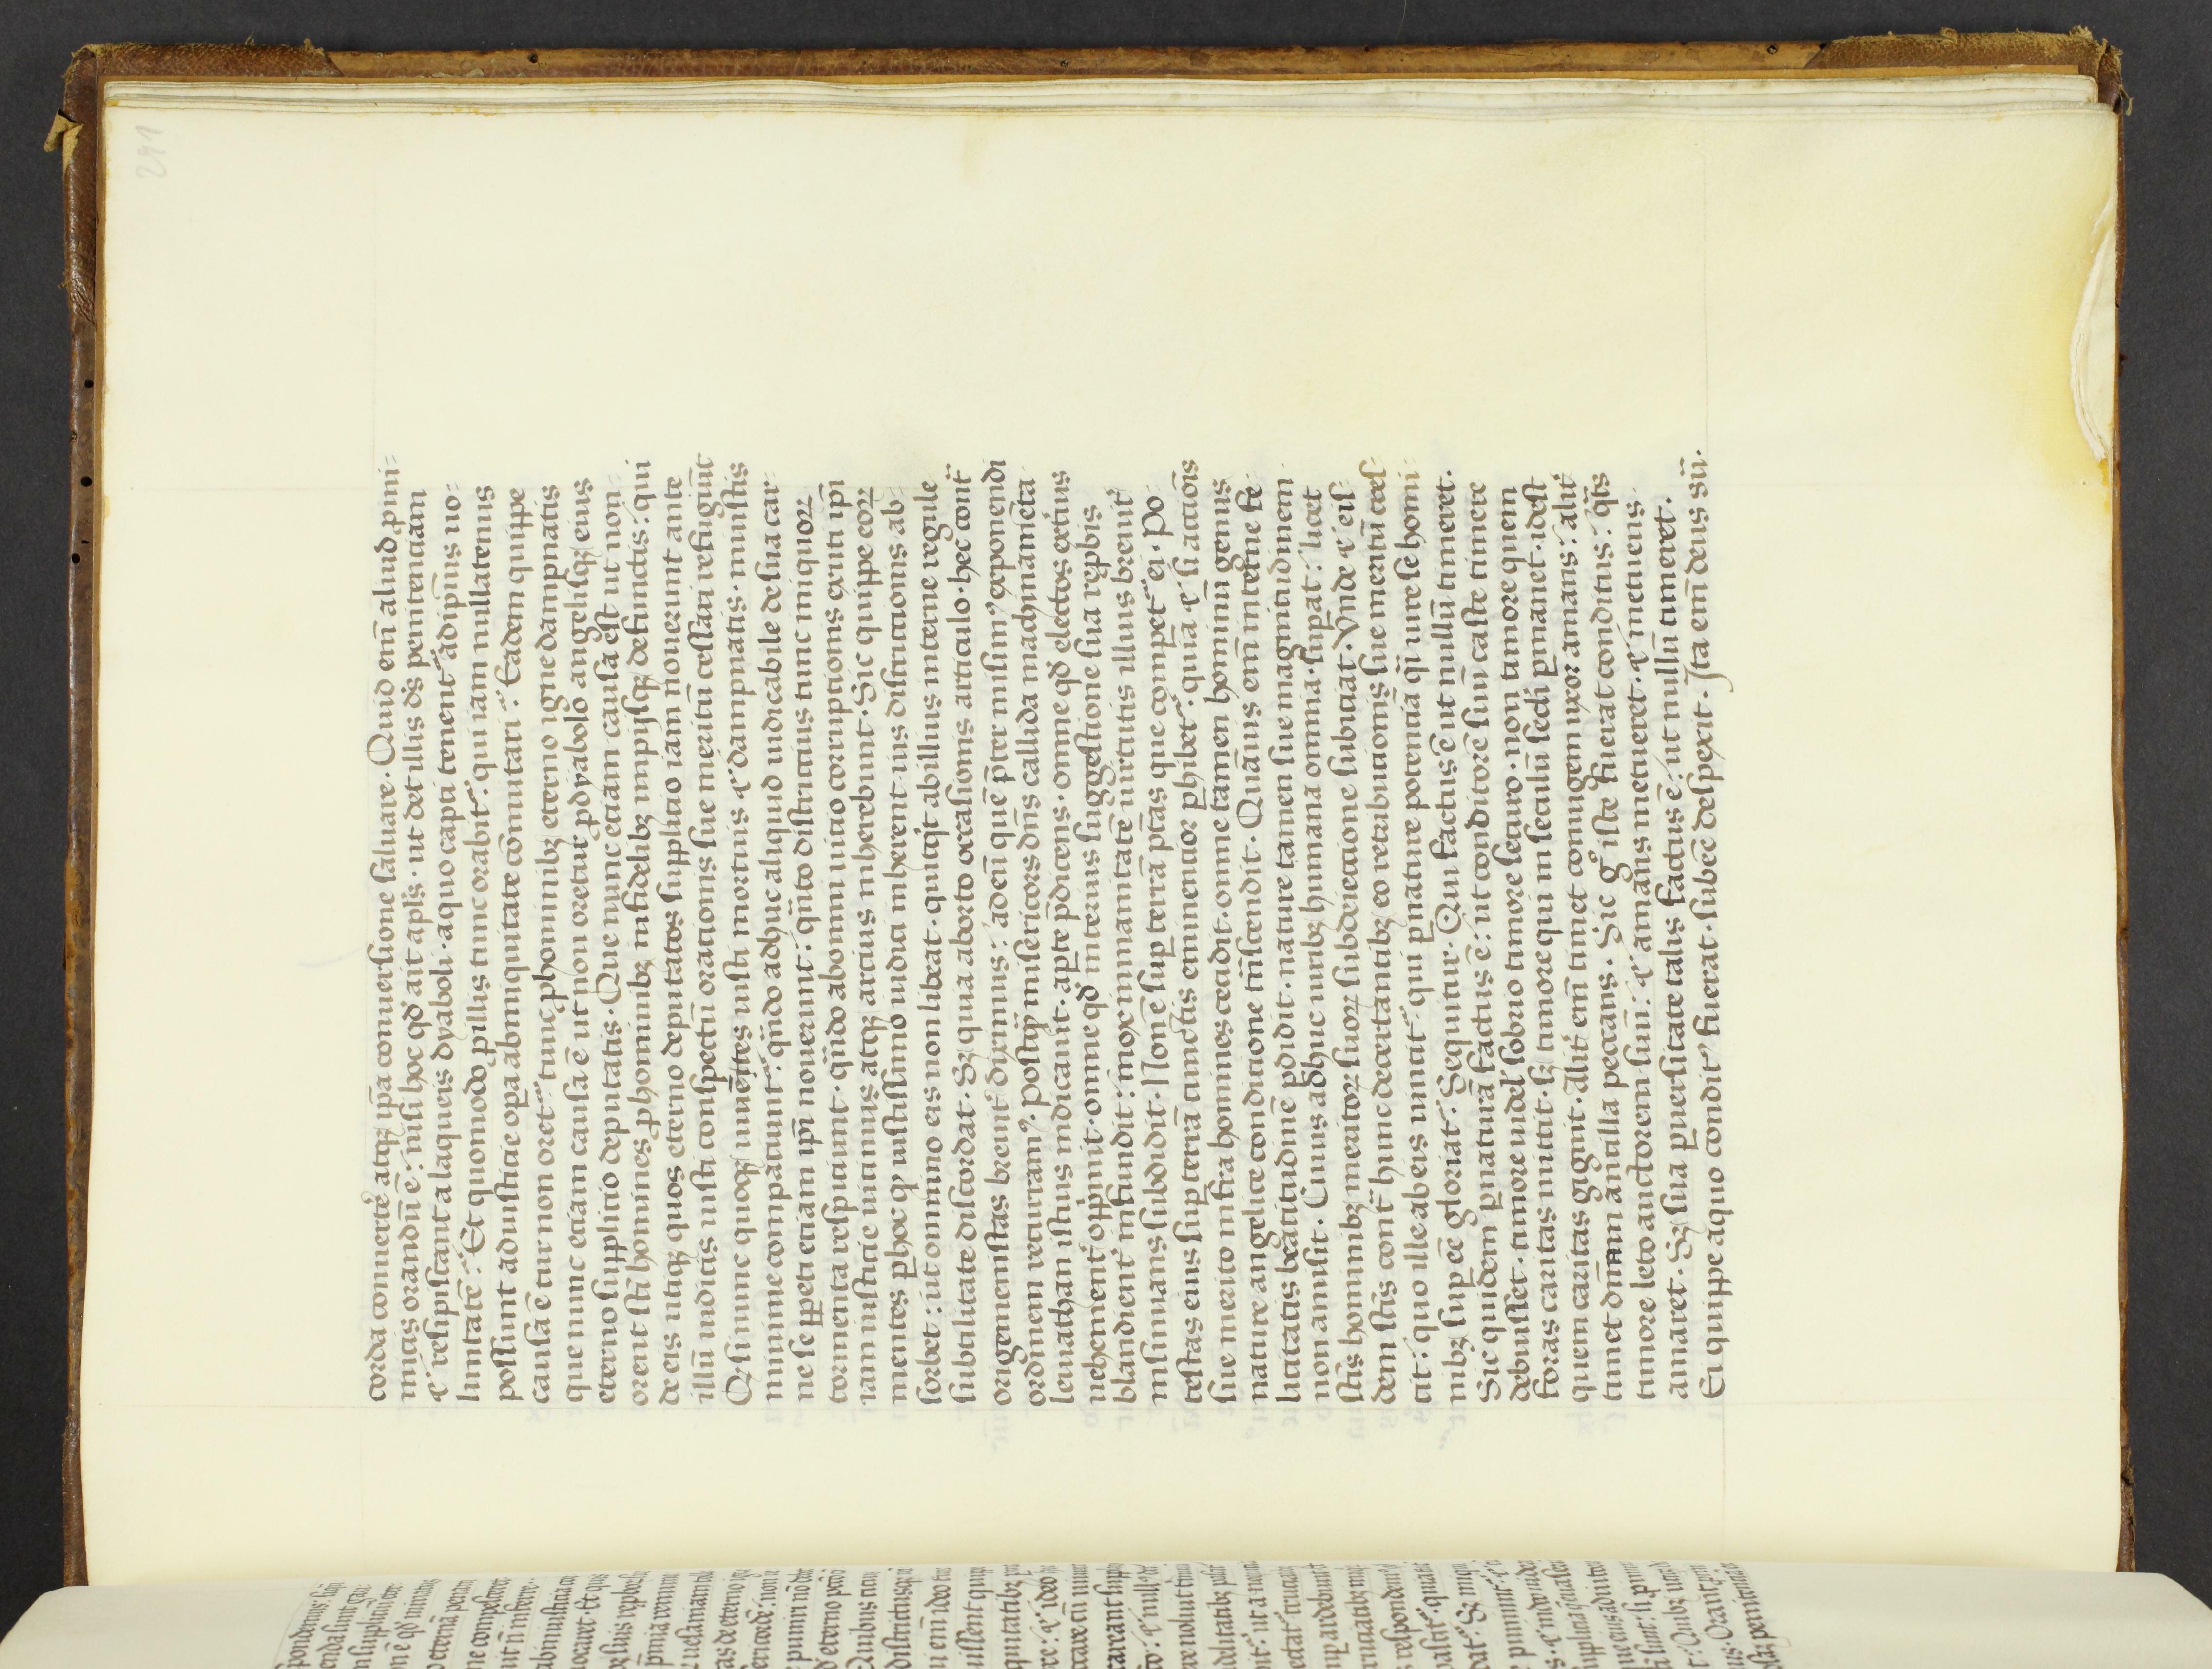 291
corda conuerte᷑ atqꝫ ip̄a conuersione saluare. Quid em̄ aliud ꝓ ini-
micis orandū ē: nisi hoc qd̓ ait apls̄. ut det illis ds̄ penitentiam
⁊ resipiscant a laqueis dyaboli. a quo capti tenent᷑ ad ip̄ius uo-
luntatē: Et quomodo ꝓ illis tunc orabit᷑: qui iam nullatenus
possunt ad iusticie oꝑa ab iniquitate cōmutari: Eadem quippe
causa ē cur non oret᷑ tunc ꝓ hominibꝫ eterno igne dampnatis
que nunc etiam causa ē ut non oretur ꝓ dyabolo angelisqꝫ eius
eterno supplicio deputatis. Que nunc etiam causa est ut non
orent sc̄i homines ꝓ hominibꝫ infidelibꝫ impijsqꝫ defunctis: qui
de eis utiqꝫ quos eterno deputatos supplicio iam nouerunt ante
illū iudicis iusti conspectū orationis sue meritū cassari refugiūt
Qꝫ si nunc quoqꝫ uiuētes iusti mortuis ⁊ dampnatis. iniustis
minime compatiunt᷑: qn̄do adhuc aliquid iudicabile de sua car-
ne se ꝑpeti etiam ip̄i nouerunt: qn̄to districtius tunc iniquoꝝ
tormenta respiciunt. qn̄do ab omni uicio corruptionis exuti ip̄i
iam iusticie uicinius atqꝫ arcius inherebunt. Sic quippe eoꝝ
mentes ꝑ hoc qd̓ iustissimo iudici inherent uis districtionis ab-
sorbet: ut omnino eis non libeat. quicqͥt ab illius interne regule
subtilitate discordat. Sꝫ quia aborto occasionis articulo. hec cont᷑
origenemistas breuit᷑ diximus: ad eū quē p̄termisim᷒ exponendi
ordinem recurram᷒. Postq̄ misericors dn̄s callida machinamēta
leuiathan istius indicauit. aꝑte p̄dicens. omne qd̓ electos exterius
uehement᷑ opp̄mit. omne qd̓ internis suggestione sua reꝓbis
blandient᷑ infundit: mox immanitatē uirtutis illius breuit᷑
insinuans subdidit. Non ē suꝑ terrā ptās que compet᷑ ei. Po-
testas eius suꝑ terrā cunctis eminentior ꝑhibet᷑: quia ⁊ si actiōis
sue merito infra homines cecidit. omne tamen hominū genus
nature angelice conditione trāscendit. Quāuis em̄ interne fe-
licitatis beatitudinē ꝑdidit. nature tamen sue magnitudinem
non amisit. Cuius adhuc uiribꝫ humana omnia. suꝑat: licet
sc̄is hominibꝫ meritoꝝ suoꝝ subdeiectione subiciat. Vnde ⁊ eis-
dem sc̄is cont᷑ hunc decertantibꝫ eo retributionis sue meritū cres-
cit: quo ille ab eis uincit᷑ qui ꝑ nature potentiā q̄i iure se homi-
nibꝫ suꝑ eē gloriat᷑. Sequitur. Qui factus ē ut nullū timeret.
Sic quidem ꝑ naturā factus ē: ut conditorē suū caste timere
debuisset. timore uidel̓ sobrio timore securo. non timore quem
foras caritas mittit. sꝫ timore qui in seculū secl̓i ꝑmanet. idest
quem caritas gignit. Alit᷑ em̄ timet coniugem uxor amans: alit᷑
timet dn̄am ancilla peccans. Sic gͦ iste fuerat conditus: qͣts
timore leto auctorem suū: ⁊ amans metueret. ⁊ metuens
amaret. Sꝫ sua ꝑuersitate talis factus ē: ut nullū timeret.
Ei quippe a quo condit᷒ fuerat. subēe despexit. Ita em̄ deus sū.